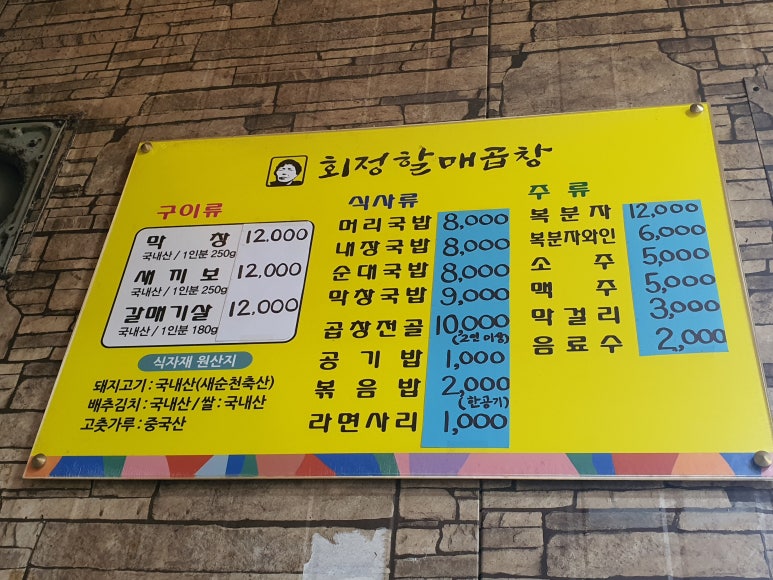 회정할매곱창
구이류
막창 12,000
국내산 / 1인분 250g
새끼보 12,000
국내산 / 1인분 250g
갈매기살 12,000
국내산 / 1인분 180g
식자재 원산지
돼지고기 : 국내산(새순천축산)
배추김치 : 국내산 / 쌀 : 국내산
고춧가루 : 중국산
식사류
머리국밥 8,000
내장국밥 8,000
순대국밥 8,000
막창국밥 9,000
곱창전골 10,000
(2인 이상)
공기밥 1,000
볶음밥 2,000
(한공기)
라면사리 1,000
주류
복분자 12,000
복분자와인 6,000
소주 5,000
맥주 5,000
막걸리 3,000
음료수 2,000